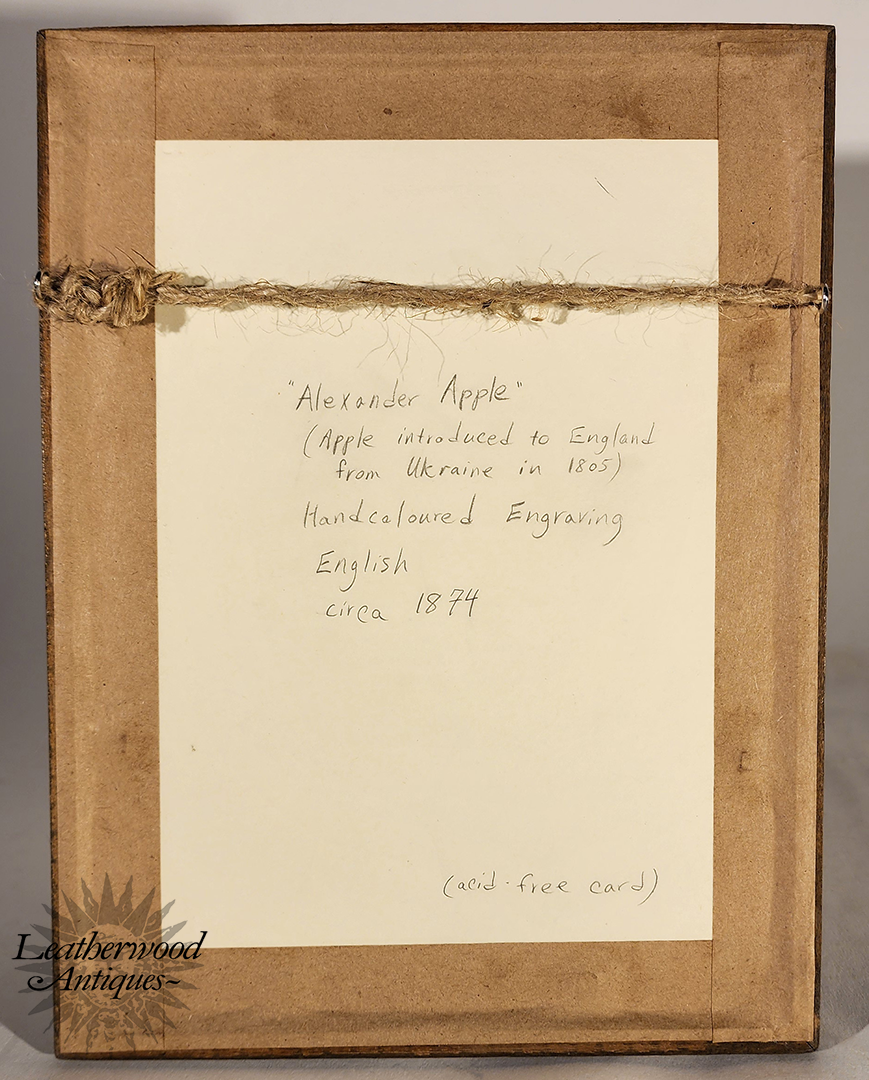 "Alexander Apple"
(Apple introduced to England
from Ukraine in 1805)
Handcoloured Engraving
English
circa 1874
(acid-free card)
Leatherwood
Antiques~